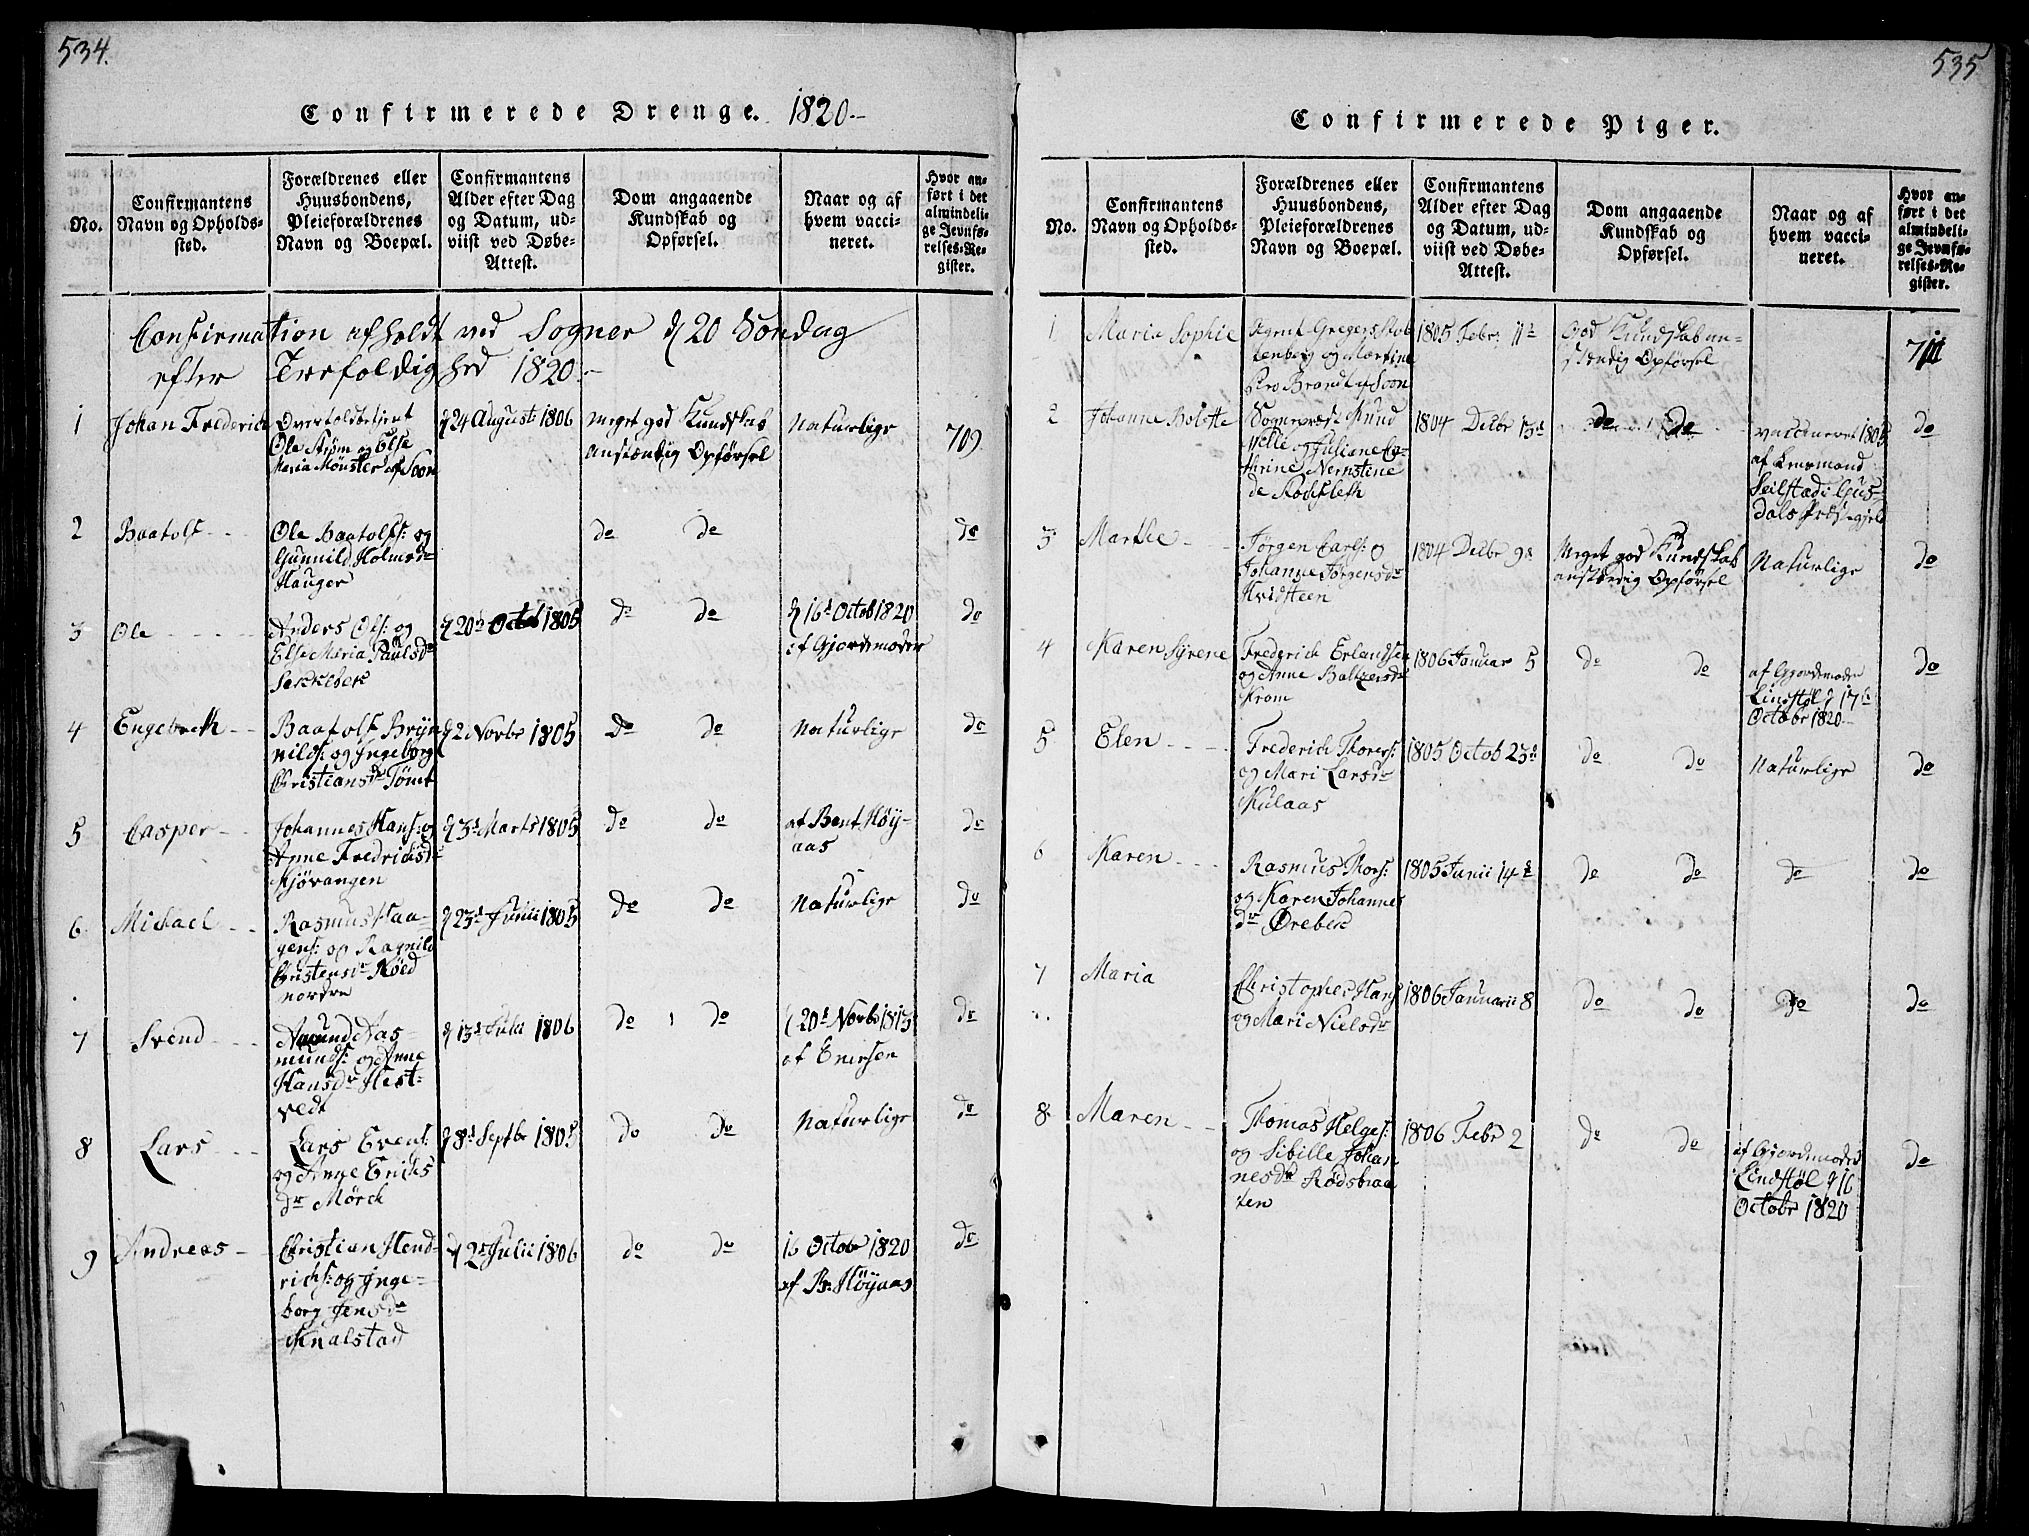 534.
Confirmerede Drenge. 1820.-
No.
Confirmantens
Navn og Opholds-
sted.
Forældrenes eller
Huusbondens,
Pleieforældrenes
Navn og Boepæl.
Confirmantens
Alder efter Dag
og Datum, ud-
viist ved Døbe-
Attest.
Dom angaaende
Kundskab og
Opførsel.
Naar og af
hvem vacci-
neret.
Hvor an-
ført i det
almindeli-
ge Jevnfø-
relses-Re-
gister.
Confirmation afholdt ved Sogner d 20 Söndag
efter Trefoldighed 1820.-
1
Johan Frederich
Overtoldbetient
Ole Strøm og Else
Maria Mönster af Soon
d 24 August 1806
meget god Kundskab
anstændig Opförsel
Naturlige
709.
2
Baatolf - -
Ole Baatolfs: og
Gunnild Holmsdr
Hauger
do do
do
3
Ole - - - -
Anders Ols: og
Else Maria Paulsdr
Sekkebek
d 20d Octob 1805
do do
d 16d Octob 1820
af Gjordemoder
do
4
Engebreth - -
Baatolf Bryn-
nilds: og Ingeborg
Christiansdr Tömt
d 2 Novbr 1805
do do
Naturlige
do
5
Casper - -
Johannes Hans: og
Anne Fredrichsd-
Kjövangen
d 3d Marts 1805
do do
af Bent Höy-
aas
do
6.
Michael - -
Rasmus Haa-
gens: og Ragnild
Christensdr Röed
nordre
d 23d Junii 1805
do do
Naturlige
do
7
Svend - - -
Amund Aas-
munds: og Anne
Hansdr Hest-
vedt
d 13d Julii 1806
do do
d 20d Novbr 1815
af Enersen
do
8
Lars - - -
Lars Evens:
og Anne Erichs
dr Mörch
d 8d Septbr 1805
do do
Naturlige
do
9
Andreas -
Christian Hend-
richs: og Inge-
borg Jensdr
Knalstad
d 2d Julii 1806
do do
16 Octob 1820
af B. Höyaas
do
535
Confirmerede Piger.
No.
Confirmantens
Navn og Opholds-
sted.
Forældrenes eller
Huusbondens,
Pleieforældrenes
Navn og Boepæl.
Confirmantens
Alder efter Dag
og Datum, ud-
viist ved Døbe-
Attest.
Dom angaaende
Kundskab og
Opførsel.
Naar og af
hvem vacci-
neret.
Hvor an-
ført i det
almindeli-
ge Jevnfø-
relses-Re-
gister.
1
Maria Sophie
Agent Gregers Stol-
tenberg og Martine
Brandt af Soon
1805 Febr: 11d
God Kundskab an-
stændig Opförsel
711
2
Johanne Bolette
Sognepræst Knud
og Juliane Ca-
thrine Nernstine
de Rochfleth
1804 Decbr 13d
do do
vaccineret 1805
af Lensmand
Seilstad i Gus-
dals Præstegjeld
do
3.
Marthe - -
Jörgen Carls: og
Johanne Jörgensdr
Hvidsteen
1804 Decbr 9d
Meget god Kundskab
anstændig Opförsel
Naturlige
do
4
Karen Syrene
Frederich Erlandsen
og Anne Baltzersdr
Krom
1806 Januar 5
do do
af Gjordemoder
Lindstöl d 17d
Octobr 1820
do
5
Elen - - - -
Frederich Thorers:
og Mari Larsdr
Kulaas
1805 Octob 23d
do do
Naturlige
do
6
Karen - - -
Rasmus Thors:
og Karen Johannes
dr Örebek
1805 Junii 14d
do do
do
do
7
Maria
Christopher Hans
og Mari Nielsdr
1806 Januarii 8
do do
do
do
8.
Maren - -
Thomas Helges:
og Sibille Johan
nesdr Rödsbraa
ten
1806 Febr 2
do do
af Gjordemoder
Lindstöl d 16
Octobr 1820
do